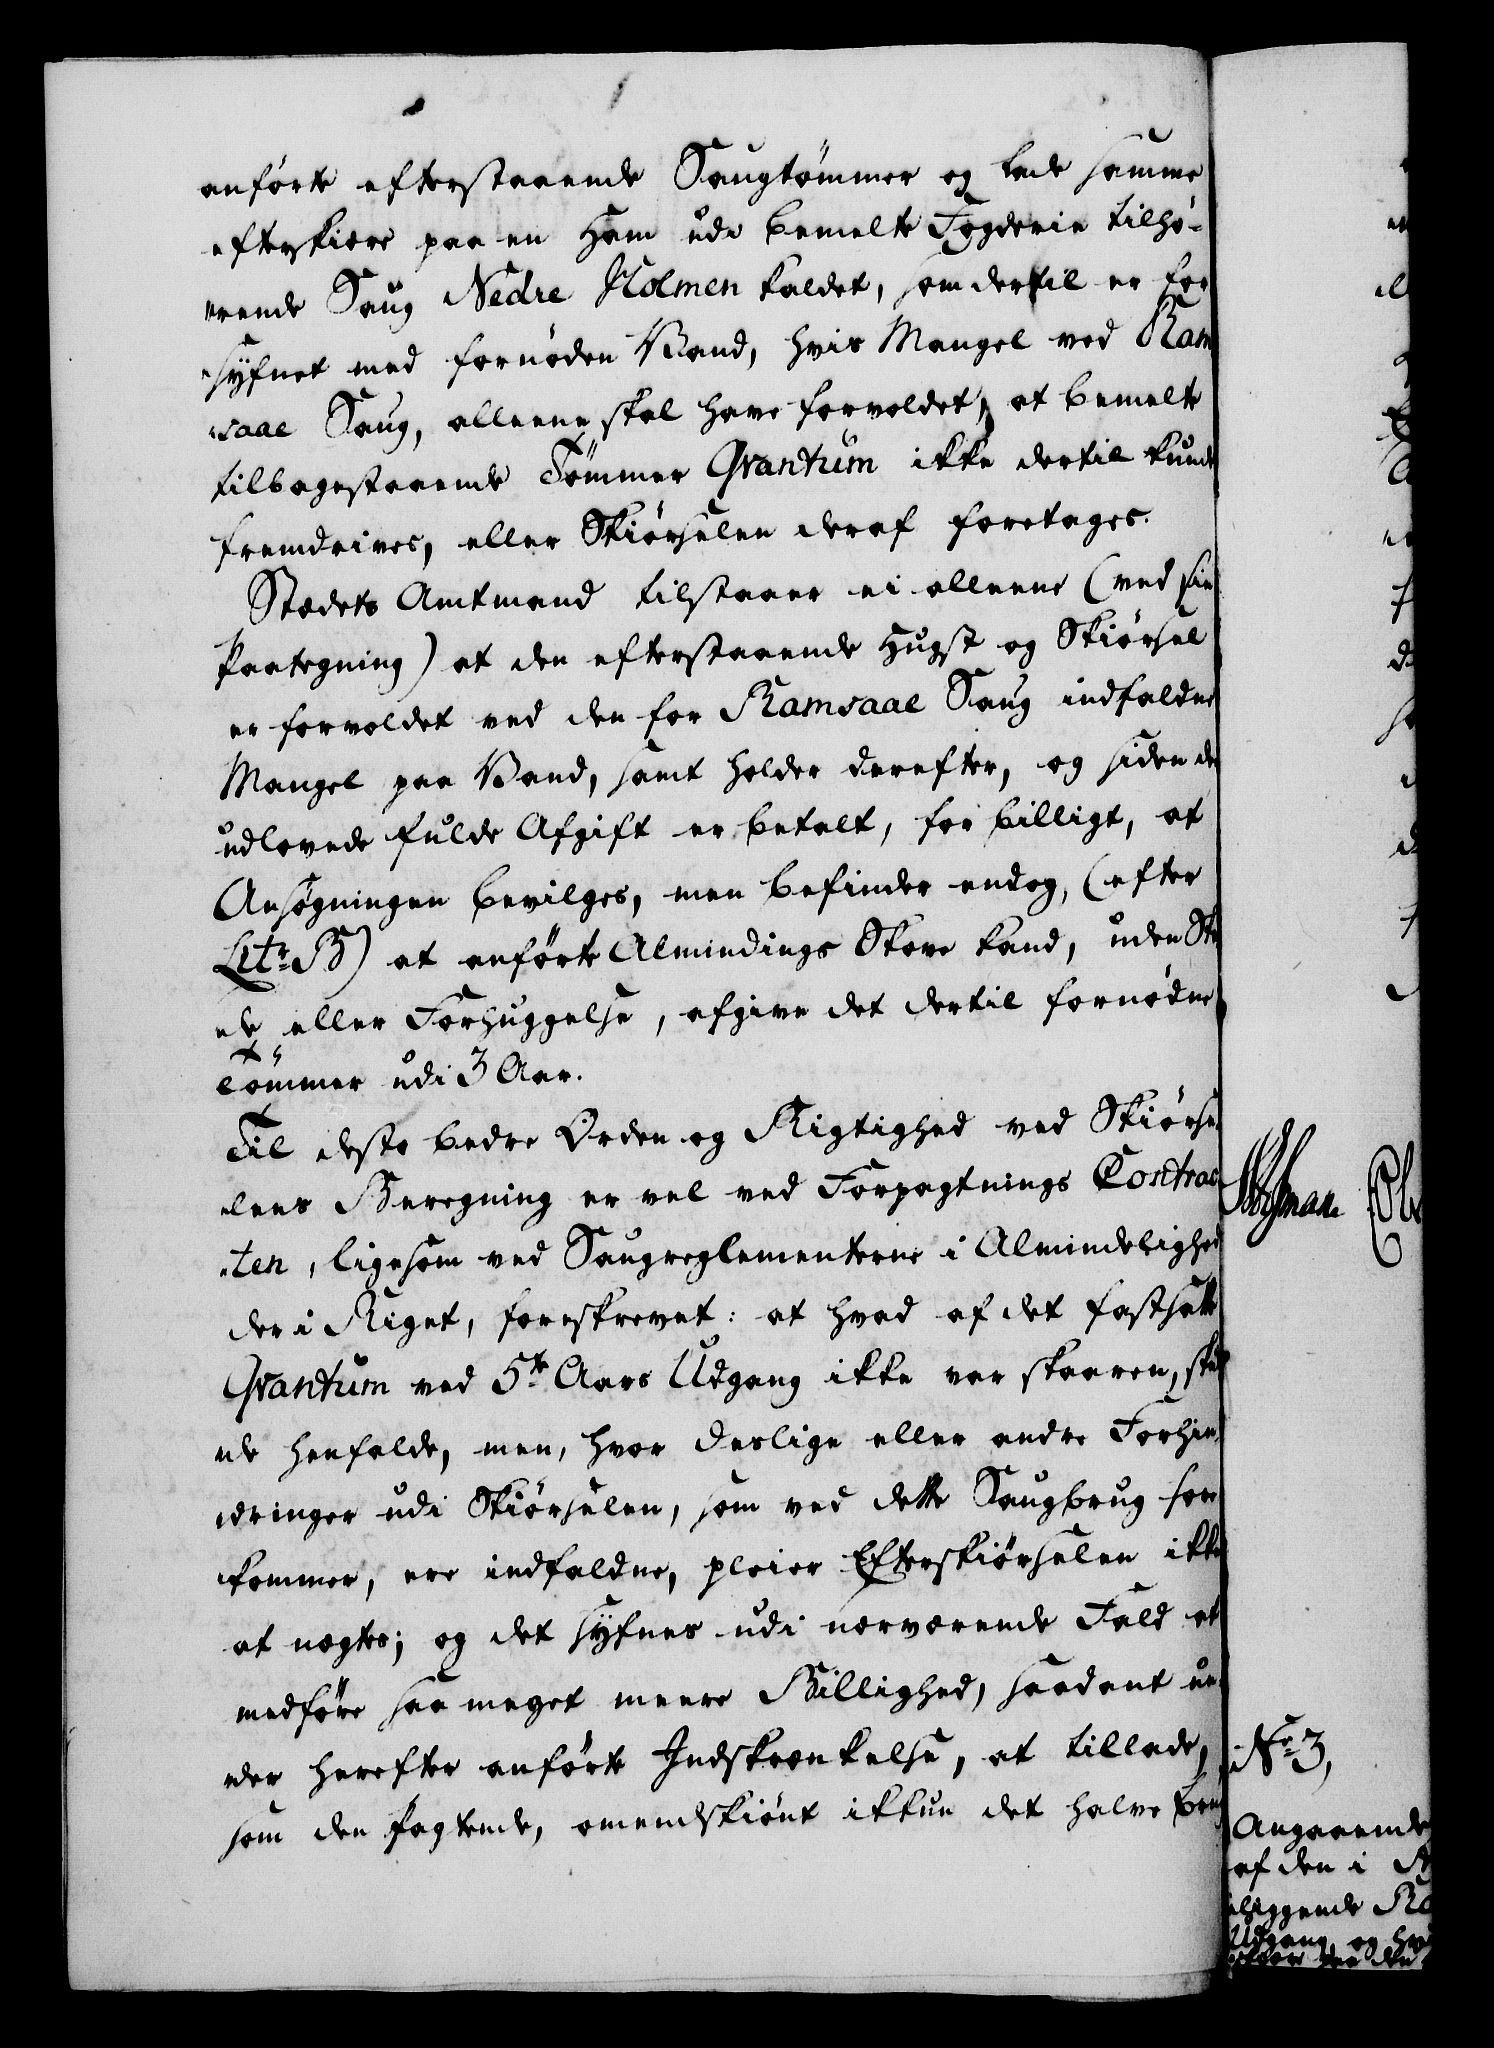 anførte efterstaaende Saugtømmer og lade samme
efterskiære paa en Ham udi bemelte Fogderie tilhø-
rende Saug Nedre Holmen kaldet, som dertil er for
syfnet med fornøden Vand, hvis Mangel ved Ram
saae Saug, alleene skal have forvoldet, at bemelte
tilbagestaaende Tømmer Qvantum ikke dertil kunde
fremdrives, eller Skiørselen deraf foretages.
Stædets Amtmand tilstaaer ei alleene (ved sin
Paategning) at den efterstaaende Hugst og Skiørsel
er forvoldet ved den for Ramsaae Saug indfaldne
Mangel paa Vand, samt holder derefter, og siden de
udlovede fulde Afgift er betalt, for billigt, at
Ansøgningen bevilges, men befinder endog, (efter
Litr: B) at anførte Almindings Skove kand, uden Ska
de eller Forhuggelse, afgive det dertil fornødne
Tømmer udi 3 Aar.
Til desto bedre Orden og Rigtighed ved Skiørse
lens Beregning er vel ved Forpagtnings Contrac
ten, ligesom ved Saugreglementerne i Almindelighed
der i Riget, foreskrevet: at hvad af det fastsatte
Qvantum ved 5te Aars Udgang ikke var skaaren, skul
de henfalde, men, hvor deslige eller andre Forhin
dringer udi Skiørselen, som ved dette Saugbrug fore
kommer, ere indfaldne, pleier Efterskiørselen ikke
at nægtes; og det syfnes udi nærværende Fald at
medføre saa meget meere Billighed, saadant un
der herefter anførte Indskrænkelse, at tillade,
som den Pagtende, omendskiønt ikkun det halve
No 3,
Angaaende
af den i
liggende
Udgang, og